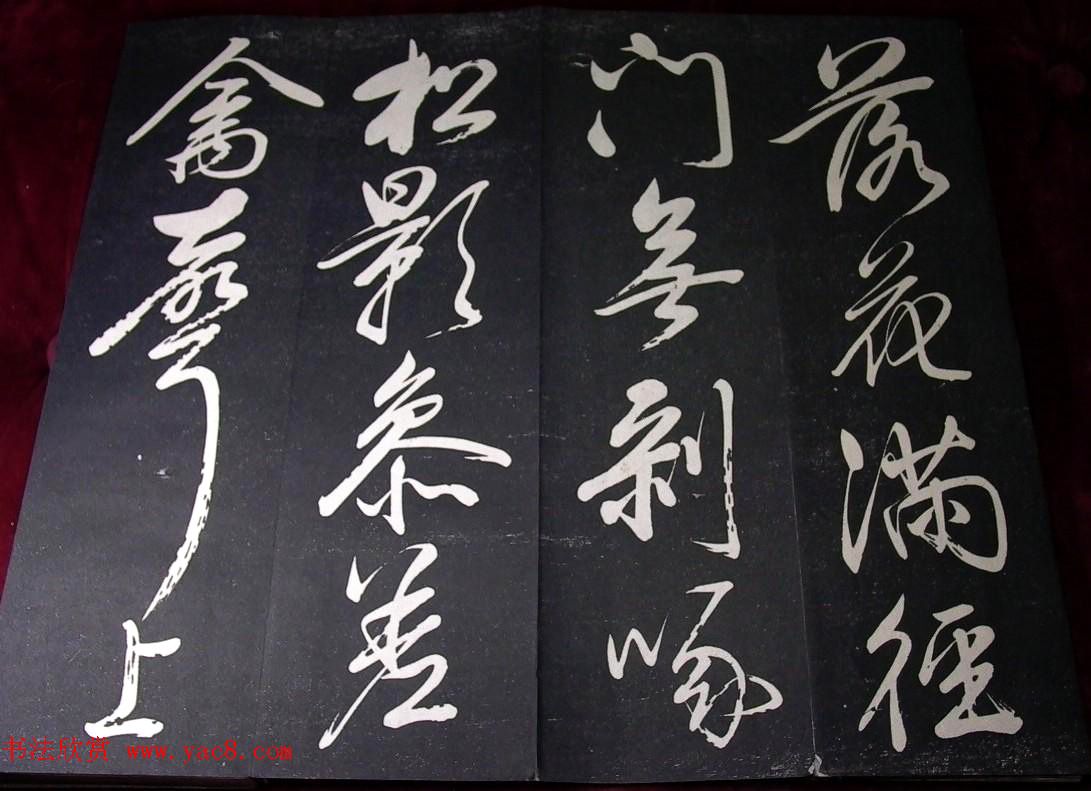 落花滿徑
門無剝啄
松影參差
禽聲上
书法欣赏 www.yac8.com